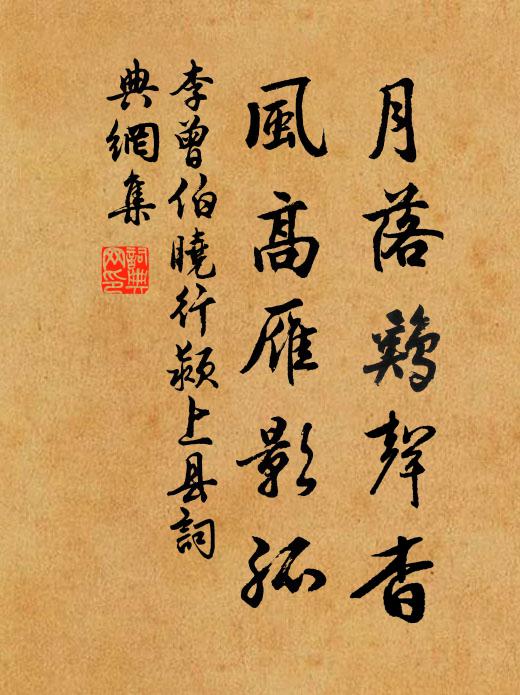 月落鷄聲杳
風高雁影孤
李曾伯曉行潁上县詞
典網集
詞典
网印